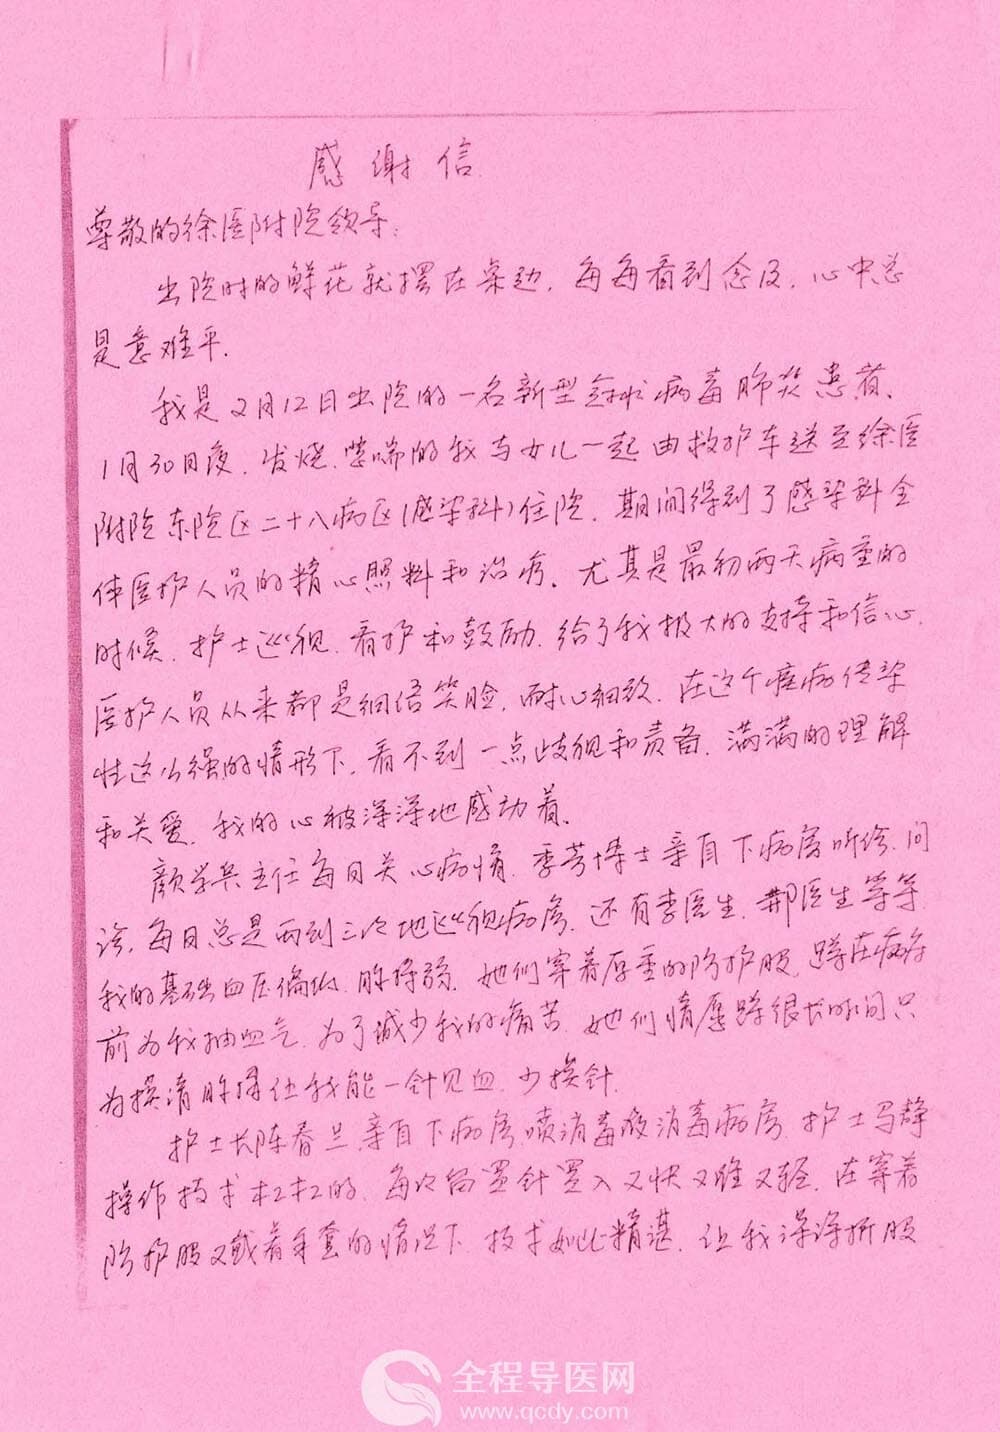 感谢信
尊敬的徐医附院领导:
出院时的鲜花就摆在桌边,每每看到念及,心中总
是意难平.
我是2月12日出院的一名新型冠状病毒肺炎患者.
1月30日夜,发烧、紧喘的我与女儿一起由救护车送至徐医
附院东院区二十八病区(感染科)住院,期间得到了感染科全
体医护人员的精心照料和治疗.尤其是最初两天病重的
时候,护士巡视、看护和鼓励,给了我极大的支持和信心.
医护人员从来都是细语笑脸,耐心细致,在这个症病传染
性这么强的情形下,看不到一点歧视和责备,满满的理解
和关爱,我的心被深深地感动着.
颜学兵主任每日关心病情,季芳博士亲自下病房听诊、问
诊,每日总是两到三次地巡视病房,还有李医生、邢医生等等
我的基础血压偏低,脉搏弱,她们穿着厚重的防护服,蹲在病床
前为我抽血气,为了减少我的痛苦,她们情愿蹲很长时间只
为摸清脉搏让我能一针见血,少挨针.
护士长陈春兰亲自下病房喷消毒液消毒病房,护士马静
操作技术杠杠的,每次留置针置入又快又准又轻,在穿着
防护服又戴着手套的情况下,技术如此精湛,让我深深折服
全程导医网
www.qcdy.com